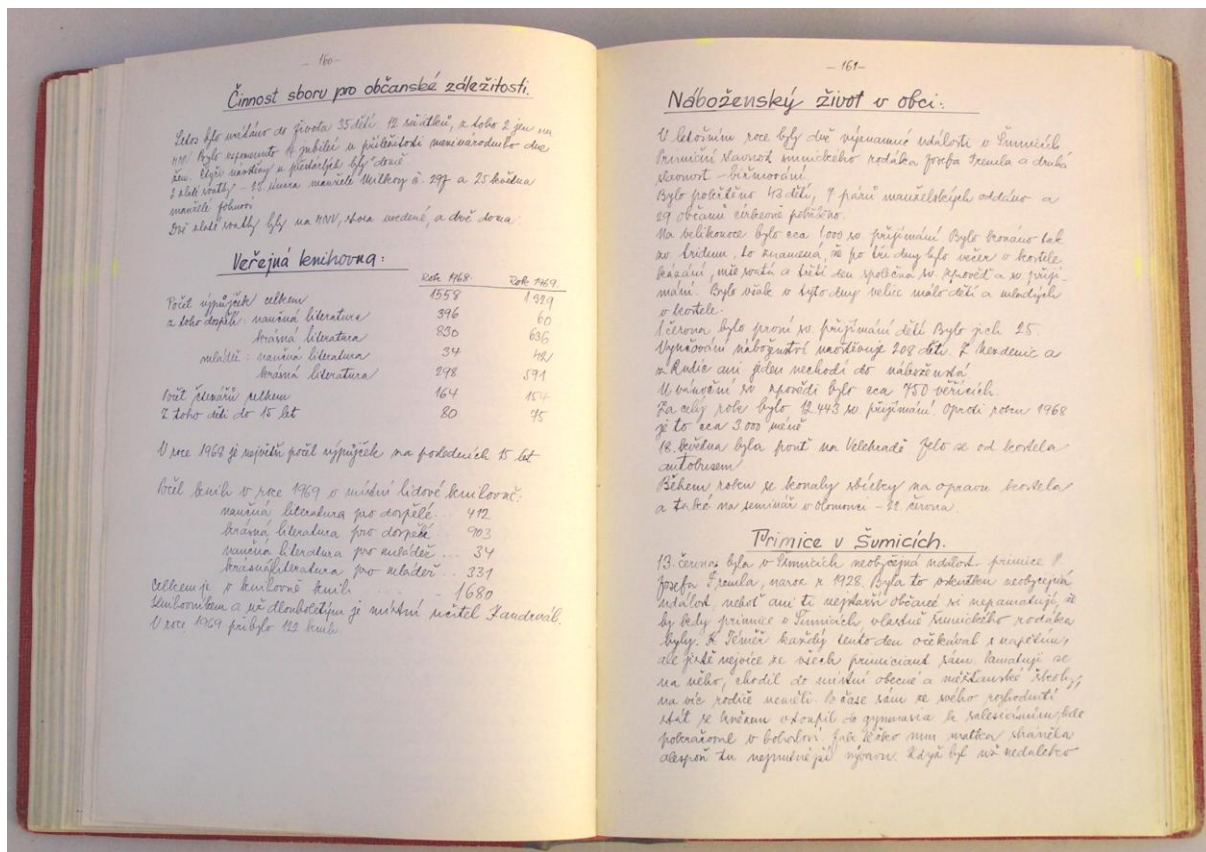 - 160-
Činnost sboru pro občanské záležitosti.
Letos bylo uvítáno do života 35 dětí 12 sňatků, z toho 2 jen na
MNV. Bylo vzpomenuto jubileí u příležitosti mezinárodního dne
žen. Čtyři návštěvy u předaných byly doma
2 zlaté svatby - 22 února manželé Mitkovy č. 297 a 25 května
manželé
Dvě zlaté svatby byly na MNV, a dvě doma.
Veřejná knihovna:
Rok 1968: Rok 1969
Počet výpůjček celkem 1558 1329
z toho dospělí: naučná literatura 396 60
krásná literatura 830 636
mládež: naučná literatura 34 42
krásná literatura 298 591
Počet čtenářů celkem 164 154
Z toho dětí do 15 let 80 75
V roce 1968 je největší počet výpůjček za posledních 15 let
Počet knih v roce 1969 v místní lidové knihovně:
naučná literatura pro dospělé .. 412
krásná literatura pro dospělé .. 903
naučná literatura pro mládež ... 34
krásná literatura pro mládež .. 331
Celkem je v knihovně knih - 1680
Knihovníkem a už dlouholetým je místní učitel Zandovál.
V roce 1969 přibylo 122 knih
- 161-
Náboženský život v obci:
V letošním roce byly dvě významné události v Šumicích
Primiční slavnost šumického rodáka Josefa Šremla a druhá
slavnost - biřmování.
Bylo pokřtěno 43 dětí, 7 párů manželských oddáno a
29 občanů církevně pohřbeno.
Na velikonoce bylo cca 1.000 sv. přijímání Bylo konáno tak
zv. tridum, to znamená, že po tři dny bylo večer v kostele
kázání, mše svatá a třetí den společná sv. zpověď a sv. přijí-
mání. Bylo však v tyto dny velice málo dětí a mladých
v kostele.
1. června bylo první sv. přijímání dětí Bylo jich 25.
Vyučování náboženství navštěvuje 208 dětí. Z Nezdenic a
z Rudic ani jeden nechodí do náboženství.
U vánoční sv zpovědi bylo cca 750 věřících.
Za celý rok bylo 12.443 sv přijímání. Oproti roku 1968
je to cca 3.000 méně
18. května byla pouť na Velehradě Jelo se od kostela
autobusem
Během roku se konaly sbírky na opravu kostela
a také na seminář v Olomouci - 22 června.
Primice v Šumicích.
13. července byla v Šumicích neobyčejná událost primice P.
Josefa Šremla, naroz r 1928. Byla to vskutku neobyčejná
událost, neboť ani ti nejstarší občané si nepamatují, že
by kdy primice v Šumicích, vlastně šumického rodáka
byly. Téměř každý tento den očekával s napětím,
ale jistě nejvíce ze všech primiciant sám. Pamatuji se
na něho, chodil do místní obecné a měšťanské školy,
na víc rodiče neměli. Po čase sám ze svého rozhodnutí
stát se knězem vstoupil do gymnasia k salesiánům, kde
pokračoval v bohosloví Jak těžko mu matka sháněla
alespoň tu nejnutnější výbavu. Když byl už nedaleko